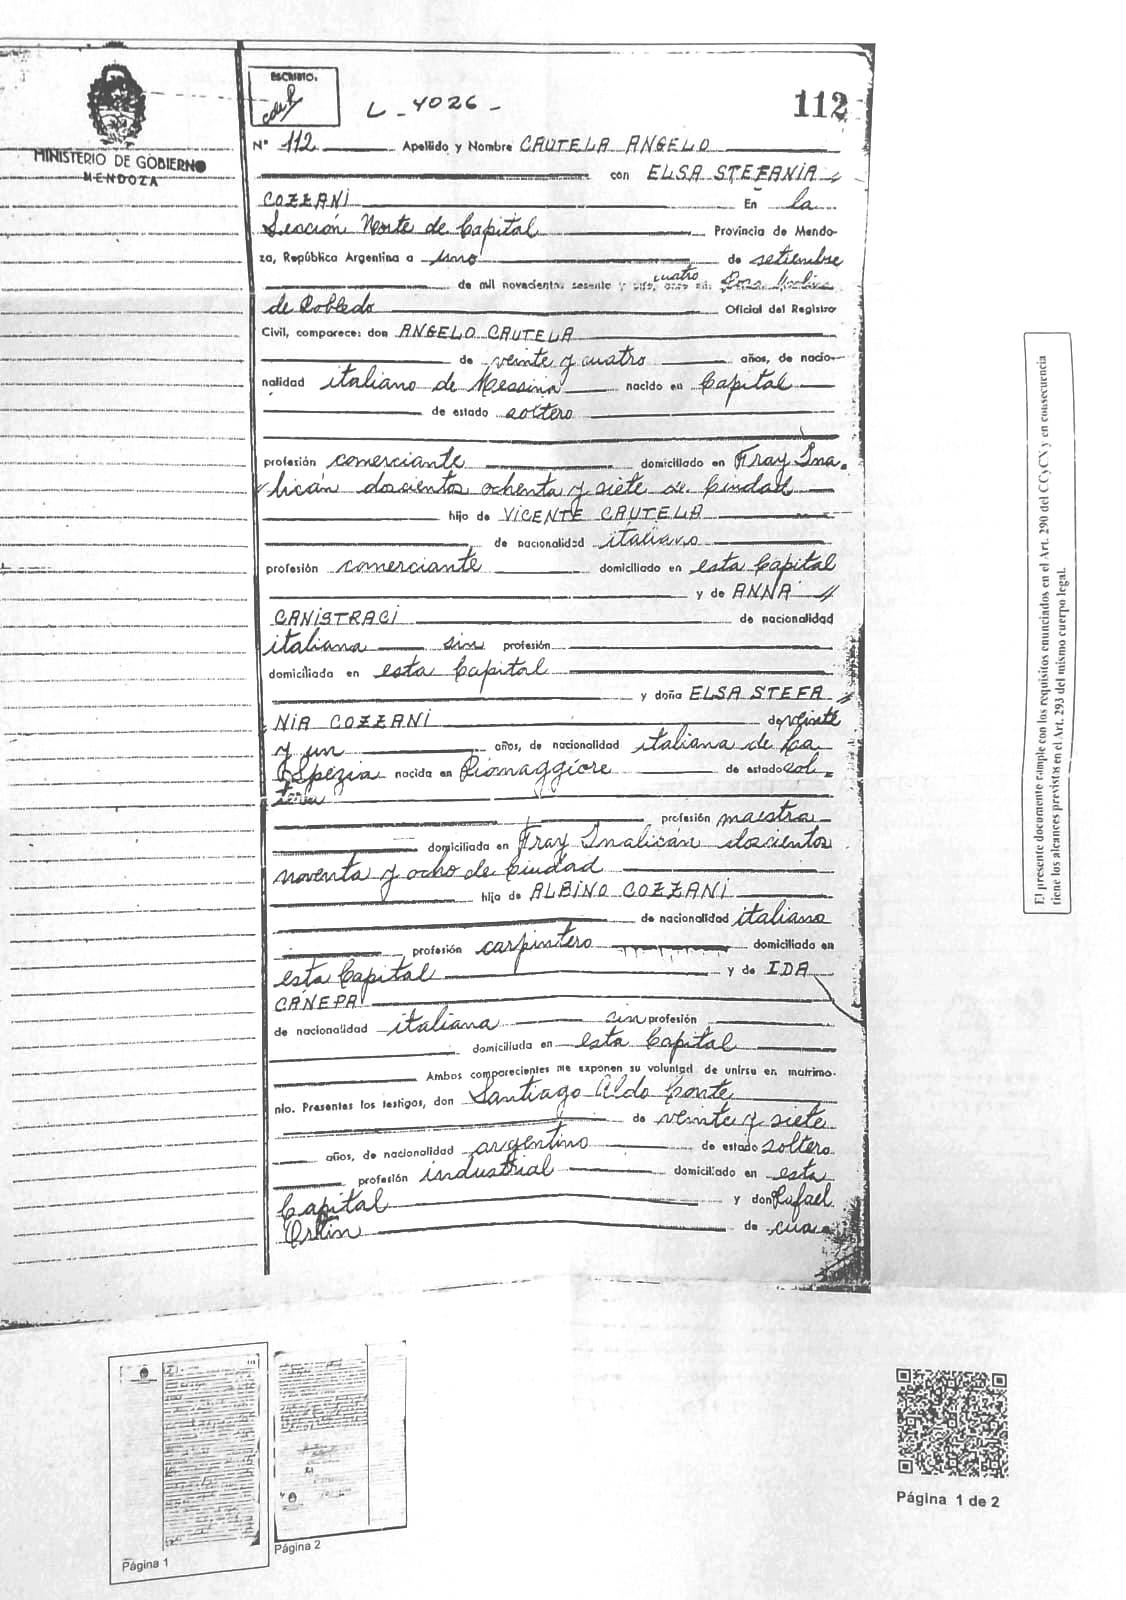 MINISTERIO DE GOBIERNO
MENDOZA
ESCRIBIO.
L - 4026 -
112
N° 112 Apellido y Nombre CAUTELA ANGELO
con ELSA STEFANIA //
COZZANI En la
Sección Norte de Capital Provincia de Mendo-
za, República Argentina a uno de setiembre
de mil novecientos sesenta y cuatro
de Robledo Oficial del Registro
Civil, comparece: don ANGELO CAUTELA
de veinte y cuatro años, de nacio-
nalidad italiano de Messina nacido en Capital
de estado soltero
profesión comerciante domiciliado en Fray Ina-
licán doscientos ochenta y siete de Ciudad
hijo de VICENTE CAUTELA
de nacionalidad italiano
profesión comerciante domiciliado en esta Capital
y de ANNA //
CANISTRACI de nacionalidad
italiana sin profesión
domiciliada en esta Capital
y doña ELSA STEFA //
NIA COZZANI de veinte
y un años, de nacionalidad italiana de La
Spezia nacida en Riomaggiore de estado sol-
tera
profesión maestra
domiciliada en Fray Inalicán doscientos
noventa y ocho de Ciudad
hija de ALBINO COZZANI
de nacionalidad italiano
profesión carpintero domiciliado en
esta Capital y de IDA
CÁNEPA
de nacionalidad italiana sin profesión
domiciliada en esta Capital
Ambos comparecientes me exponen su voluntad de unirse en matrimo-
nio. Presentes los testigos, don Santiago Aldo Conte
de veinte y siete
años, de nacionalidad argentino de estado soltero
profesión industrial domiciliado en esta
Capital y don Rafael
de cua-
El presente documento cumple con los requisitos enunciados en el Art. 290 del CCyCN y en consecuencia
tiene los alcances previstos en el Art. 293 del mismo cuerpo legal.
Página 1
Página 2
Página 1 de 2